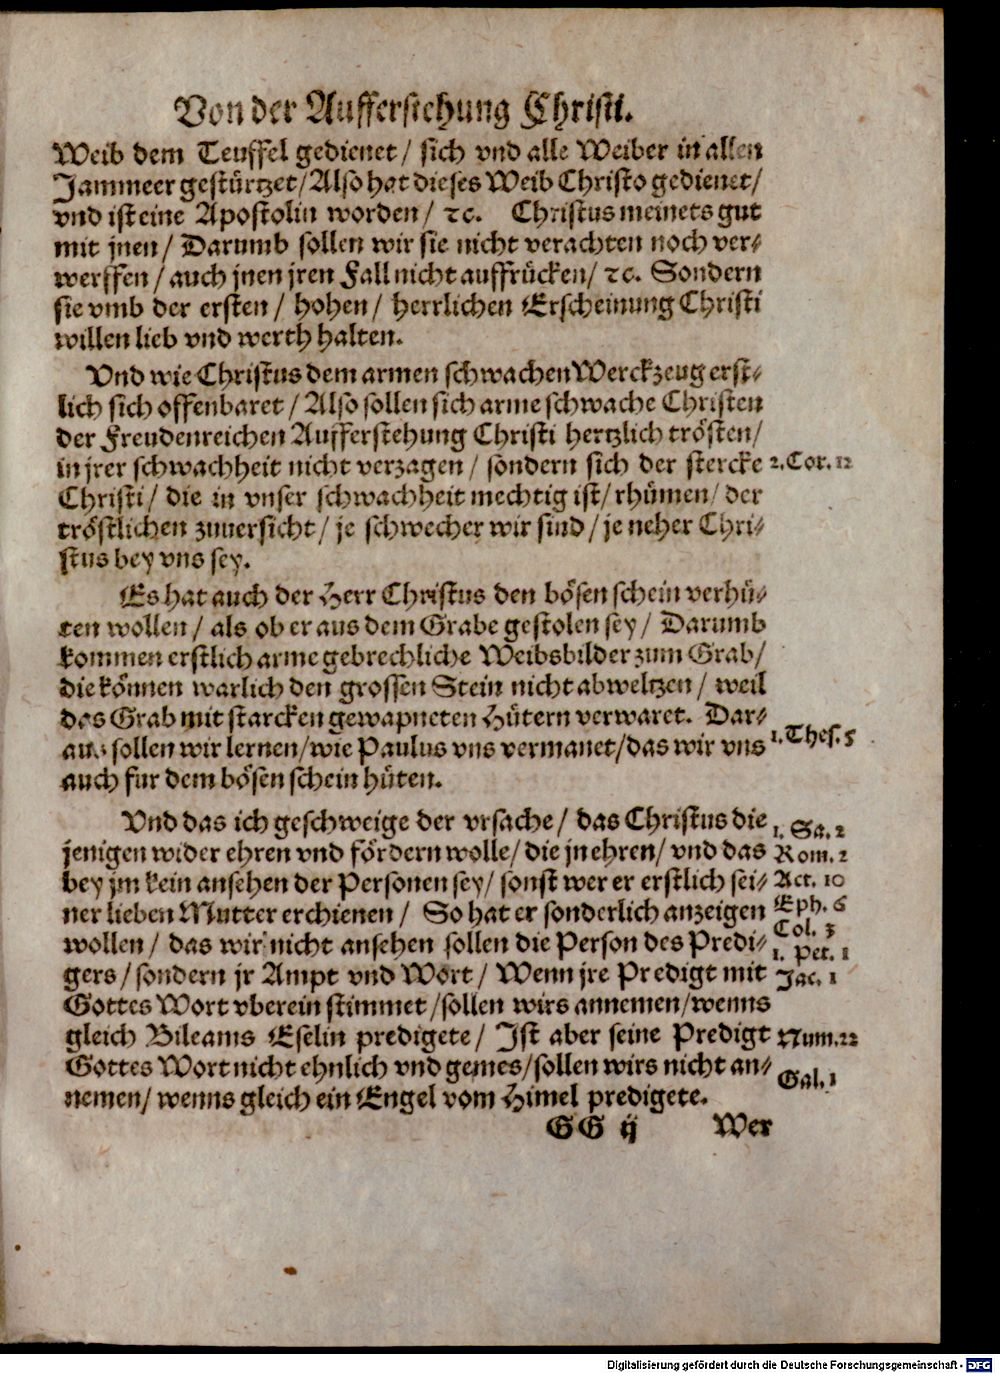 Von der Aufferstehung Christi.
Weib dem Teuffel gedienet / sich vnd alle Weiber in allen
Jammeer gestürtzet / Also hat dieses Weib Christo gedienet /
vnd ist eine Apostolin worden / ꝛc. Christus meinets gut
mit jnen / Darumb sollen wir sie nicht verachten noch ver⸗
werffen / auch jnen jren Fall nicht auffrücken / ꝛc. Sondern
sie vmb der ersten / hohen / herrlichen Erscheinung Christi
willen lieb vnd werth halten.
Vnd wie Christus dem armen schwachen Werckzeug erst⸗
lich sich offenbaret / Also sollen sich arme schwache Christen
der Freudenreichen Aufferstehung Christi hertzlich trösten /
in jrer schwachheit nicht verzagen / sondern sich der stercke 2. Cor. 12
Christi / die in vnser schwachheit mechtig ist / rhümen / der
tröstlichen zuuersicht / je schwecher wir sind / je neher Chri⸗
stus bey vns sey.
Es hat auch der Herr Christus den bösen schein verhü⸗
ten wollen / als ob er aus dem Grabe gestolen sey / Darumb
kommen erstlich arme gebrechliche Weibsbilder zum Grab /
die können warlich den grossen Stein nicht abweltzen / weil
das Grab mit starcken gewapneten Hütern verwaret. Dar⸗
aus sollen wir lernen / wie Paulus vns vermanet / das wir vns 1. Thes. 5
auch fur dem bösen schein hüten.
Vnd das ich geschweige der vrsache / das Christus die 1. Sa. 2
jenigen wider ehren vnd fördern wolle / die jn ehren / vnd das Rom. 2
bey jm kein ansehen der Personen sey / sonst wer er erstlich sei⸗ Act. 10
ner lieben Mutter erchienen / So hat er sonderlich anzeigen Eph. 6
wollen / das wir nicht ansehen sollen die Person des Predi⸗ Col. 3
1. Pet. 1
gers / sondern jr Ampt vnd Wort / Wenn jre Predigt mit Jac. 1
Gottes Wort vberein stimmet / sollen wirs annemen / wenns
gleich Bileams Eselin predigete / Ist aber seine Predigt Num. 22
Gottes Wort nicht ehnlich vnd gemes / sollen wirs nicht an⸗ Gal. 1
nemen / wenns gleich ein Engel vom Himel predigete.
GG ij Wer
Digitalisierung gefördert durch die Deutsche Forschungsgemeinschaft - DFG